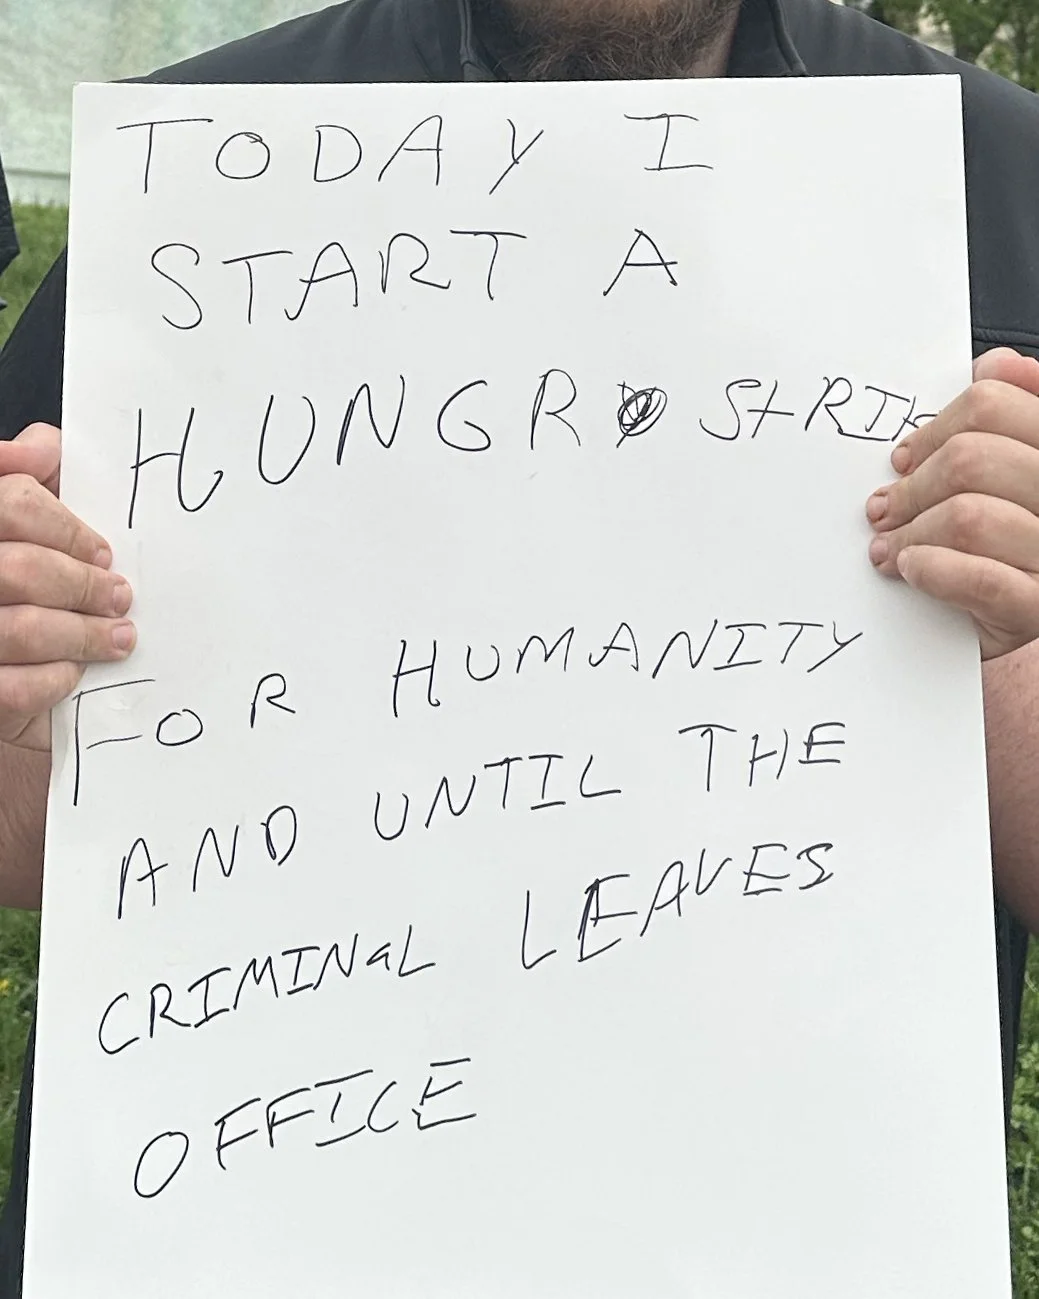 TODAY I
START A
HUNGR StRIK
FOR HUMANITY
AND UNTIL THE
CRIMINaL LEAVES
OFFICE